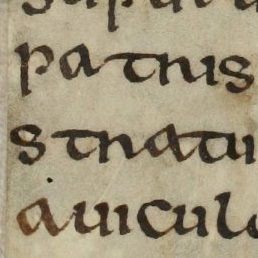 patris
stratu
auicul